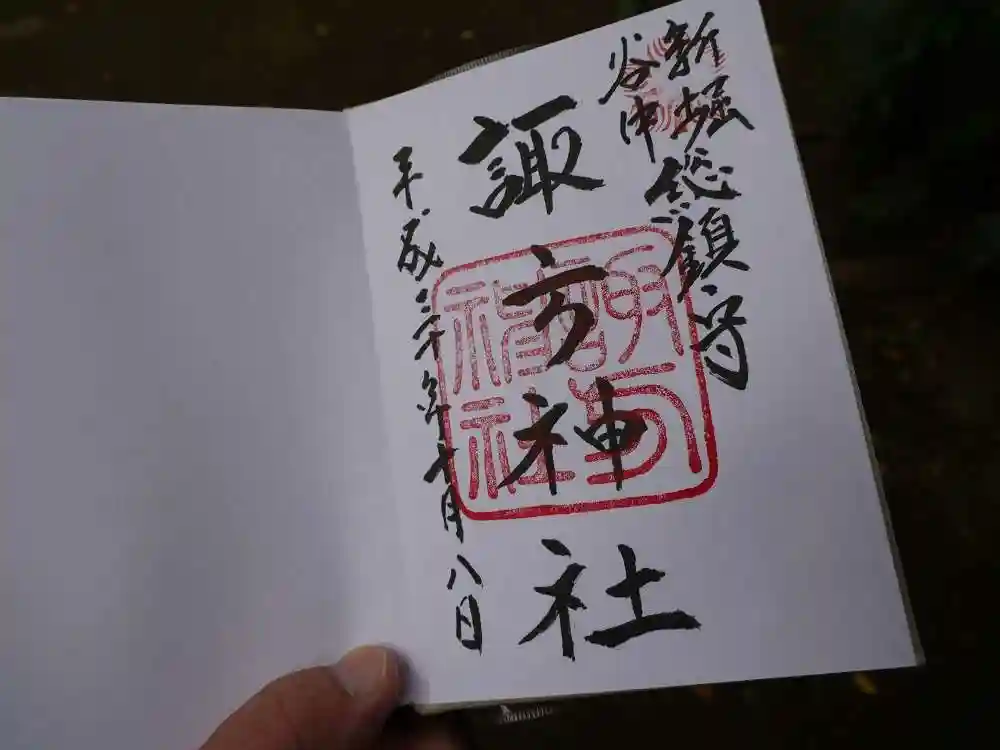 新堀
谷中
総鎮守
諏方神社
諏方神社
平成三十年十月八日